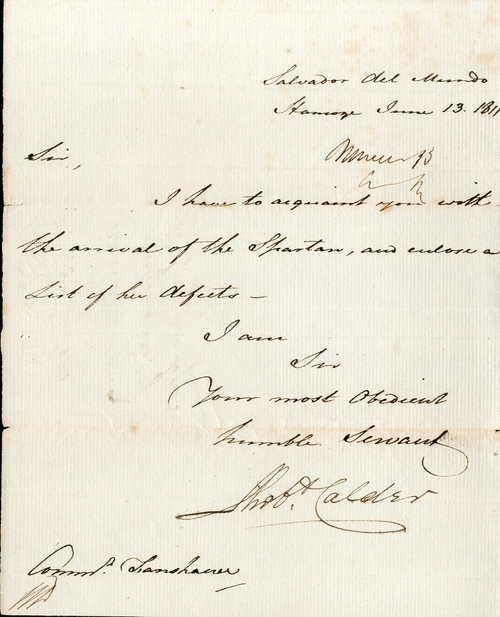 Salvador del Mundo
Hamoze June 13. 1811
Sir,
I have to acquaint you with
the arrival of the Spartan, and enclose a
List of her defects –
I am
Sir
Your most Obedient
humble Servant
Robt. Calder
Commr. Fanshawe